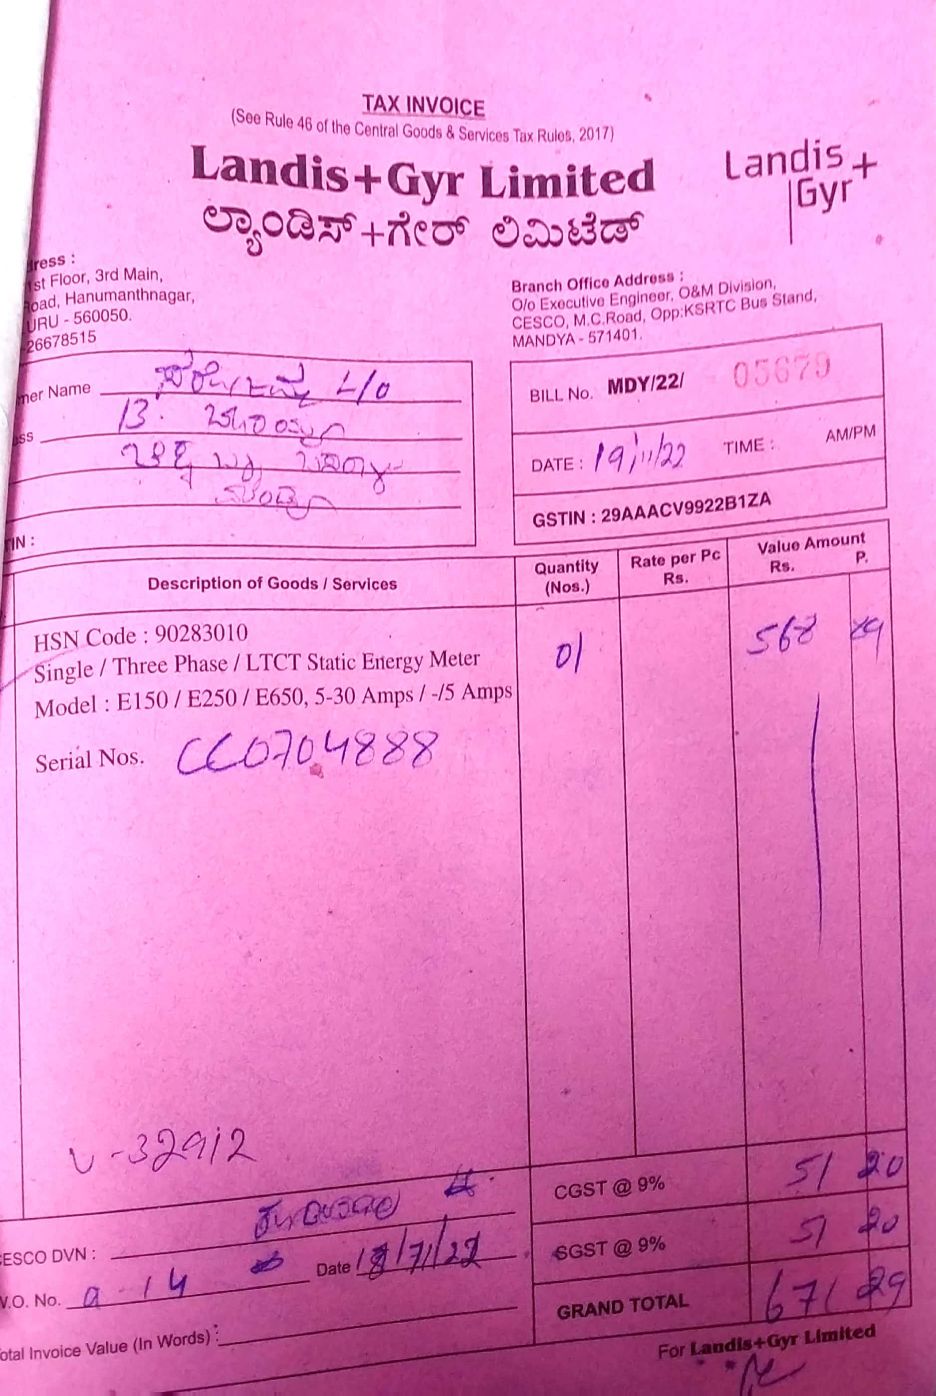 TAX INVOICE
(See Rule 46 of the Central Goods & Services Tax Rules, 2017)
Landis+Gyr Limited
Landis+
Gyr
ಲ್ಯಾಂಡಿಸ್+ಗೇರ್ ಲಿಮಿಟೆಡ್
dress :
1st Floor, 3rd Main,
oad, Hanumanthnagar,
URU - 560050.
26678515
Branch Office Address :
O/o Executive Engineer, O&M Division,
CESCO, M.C.Road, Opp:KSRTC Bus Stand,
MANDYA - 571401.
mer Name
ss
TIN :
BILL No. MDY/22/ 05679
DATE : 19/11/22 TIME : AM/PM
GSTIN : 29AAACV9922B1ZA
Description of Goods / Services
Quantity
(Nos.)
Rate per Pc
Rs.
Value Amount
Rs. P.
HSN Code : 90283010
Single / Three Phase / LTCT Static Energy Meter
Model : E150 / E250 / E650, 5-30 Amps / -/5 Amps
01 568 89
Serial Nos. CC0704888
V-32912
CGST @ 9% 51 20
SGST @ 9% 51 20
GRAND TOTAL 671 29
ESCO DVN :
W.O. No. a-14 Date
otal Invoice Value (In Words) :
For Landis+Gyr Limited